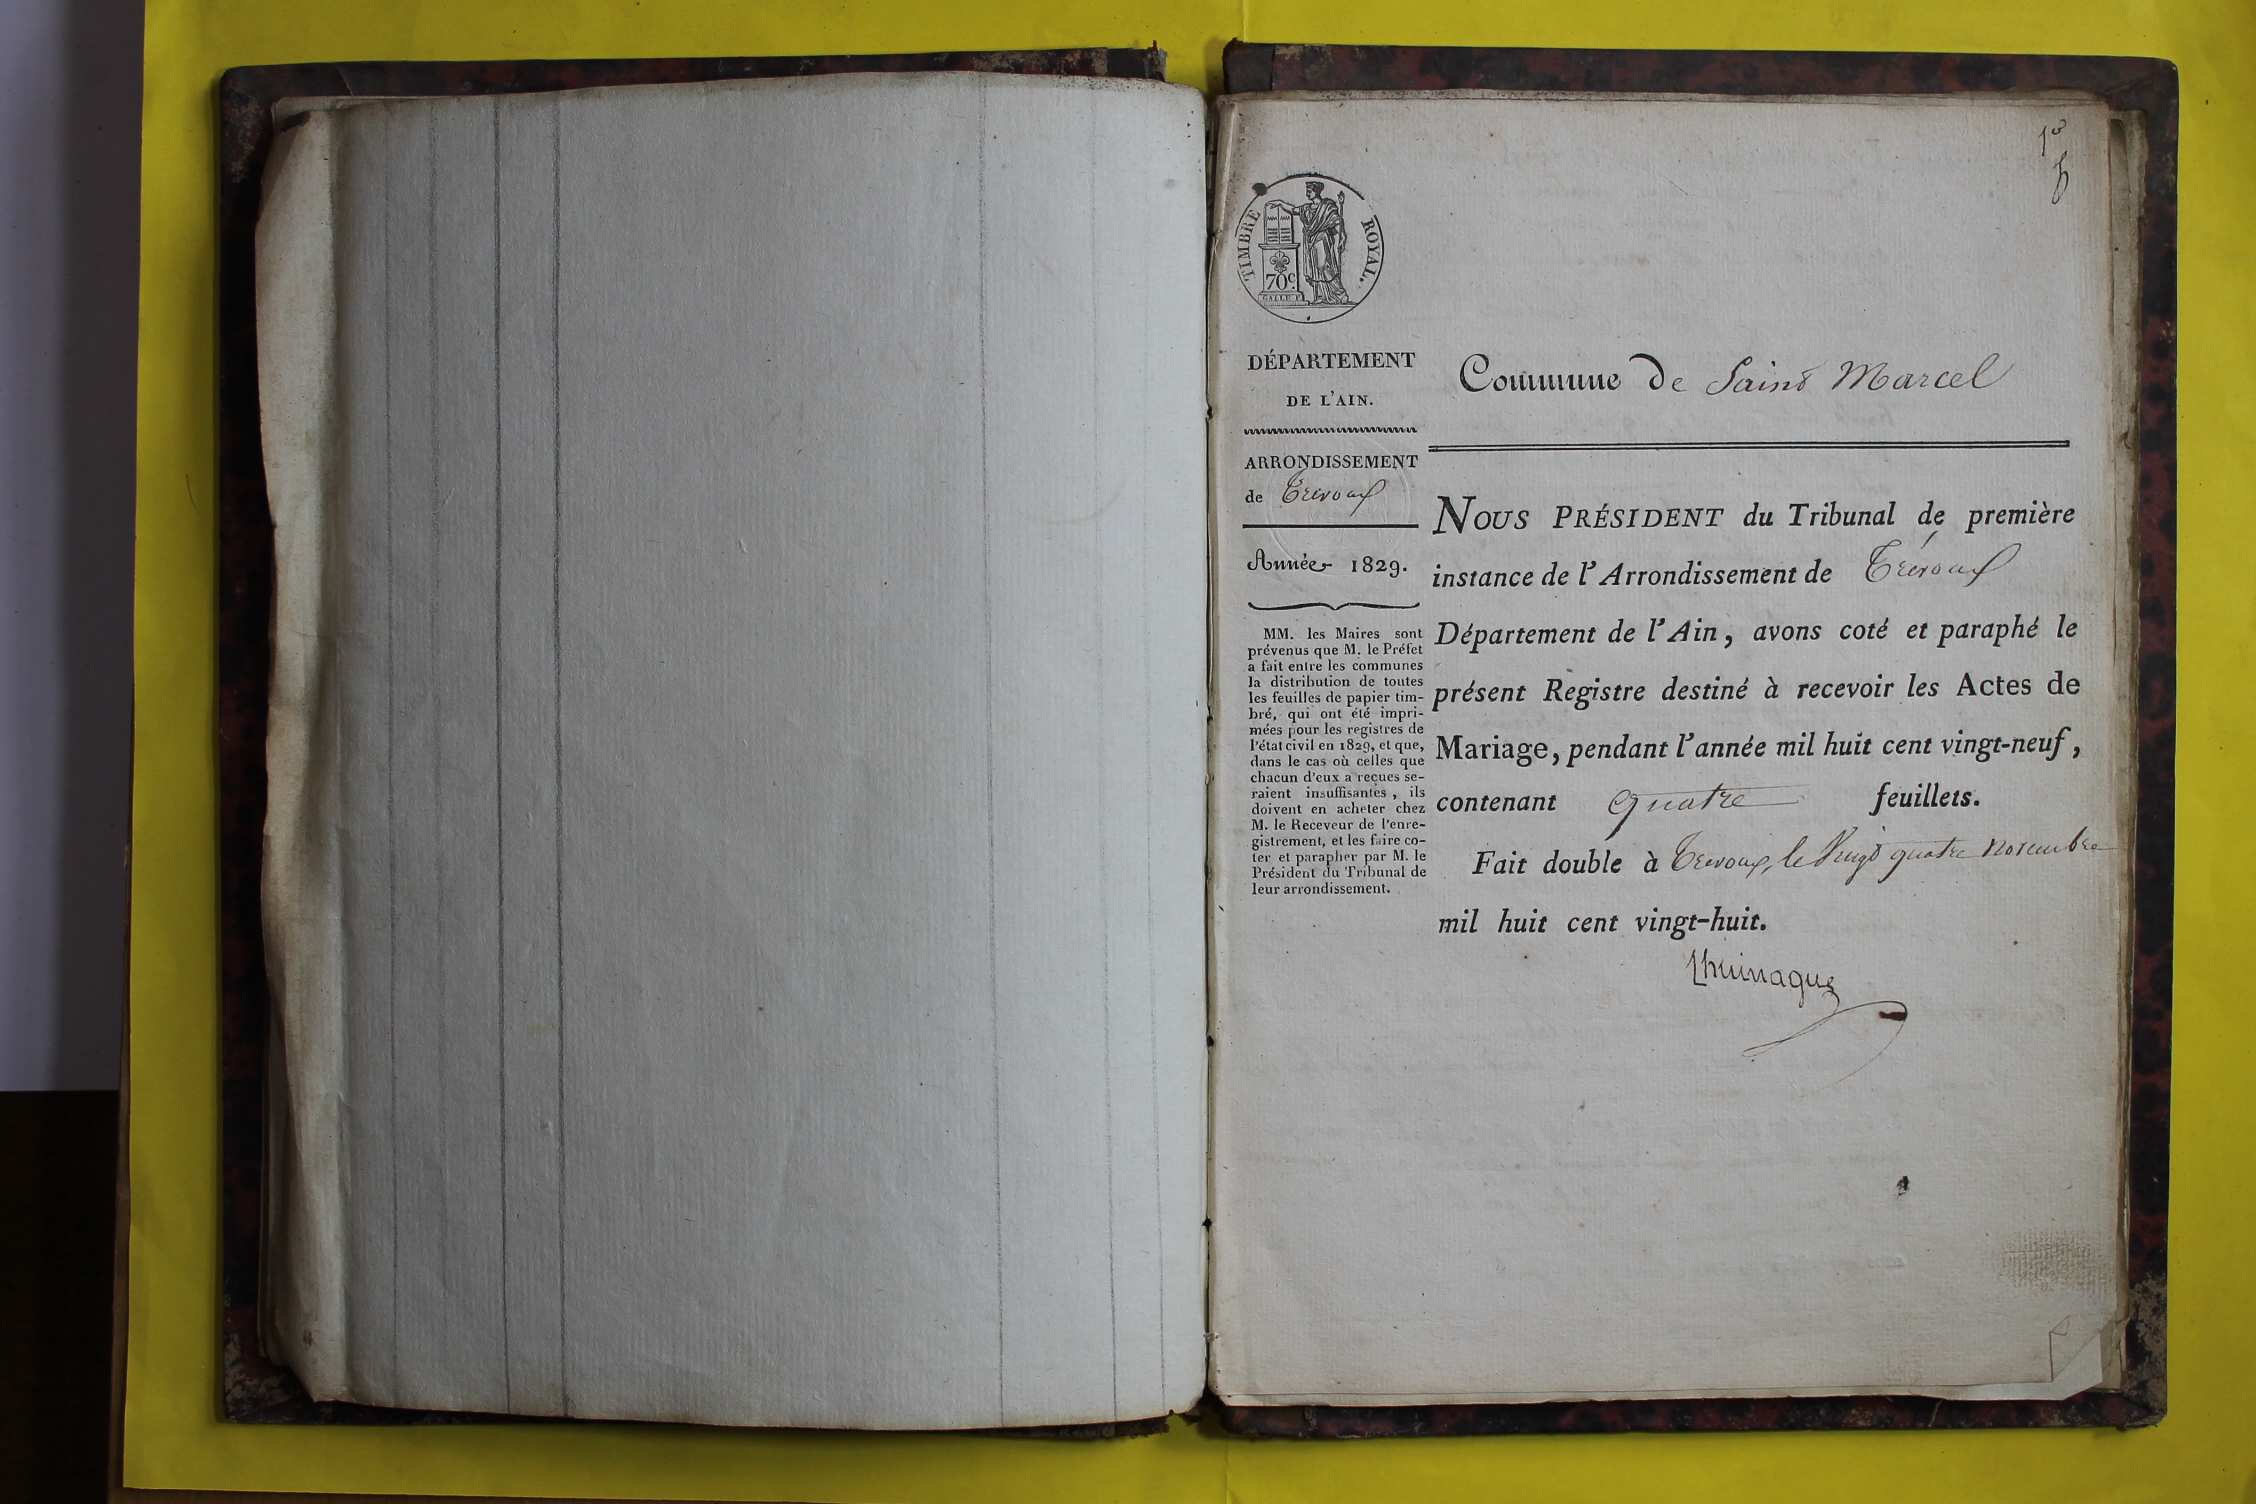 1er
TIMBRE ROYAL.
70c.
DÉPARTEMENT
DE L'AIN.
ARRONDISSEMENT
de Trévoux
Année 1829.
MM. les Maires sont
prévenus que M. le Préfet
a fait entre les communes
la distribution de toutes
les feuilles de papier tim-
bré, qui ont été impri-
mées pour les registres de
l'état civil en 1829, et que,
dans le cas où celles que
chacun d'eux a reçues se-
raient insuffisantes, ils
doivent en acheter chez
M. le Receveur de l'enre-
gistrement, et les faire co-
ter et parapher par M. le
Président du Tribunal de
leur arrondissement.
Commune de Saint Marcel
NOUS PRÉSIDENT du Tribunal de première
instance de l'Arrondissement de Trévoux
Département de l'Ain, avons coté et paraphé le
présent Registre destiné à recevoir les Actes de
Mariage, pendant l'année mil huit cent vingt-neuf,
contenant quatre feuillets.
Fait double à Trevoux, le Vingt quatre novembre
mil huit cent vingt-huit.